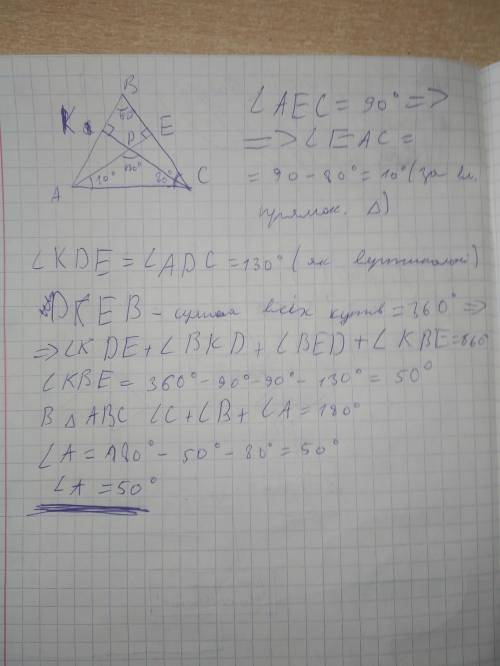 B
50°
K
E
D
130°
10°
80°
A
C
∠AEC = 90° =>
=> ∠EAC =
= 90 - 80° = 10° (за вл.
прямок. Δ)
∠KDE = ∠ADC = 130° (як вертикальні)
DKEB - сума всех кутів = 360° =>
=> ∠KDE + ∠BKD + ∠BED + ∠KBE = 360
∠KBE = 360° - 90° - 90° - 130° = 50°
В Δ ABC ∠C + ∠B + ∠A = 180°
∠A = 180° - 50° - 80° = 50°
∠A = 50°